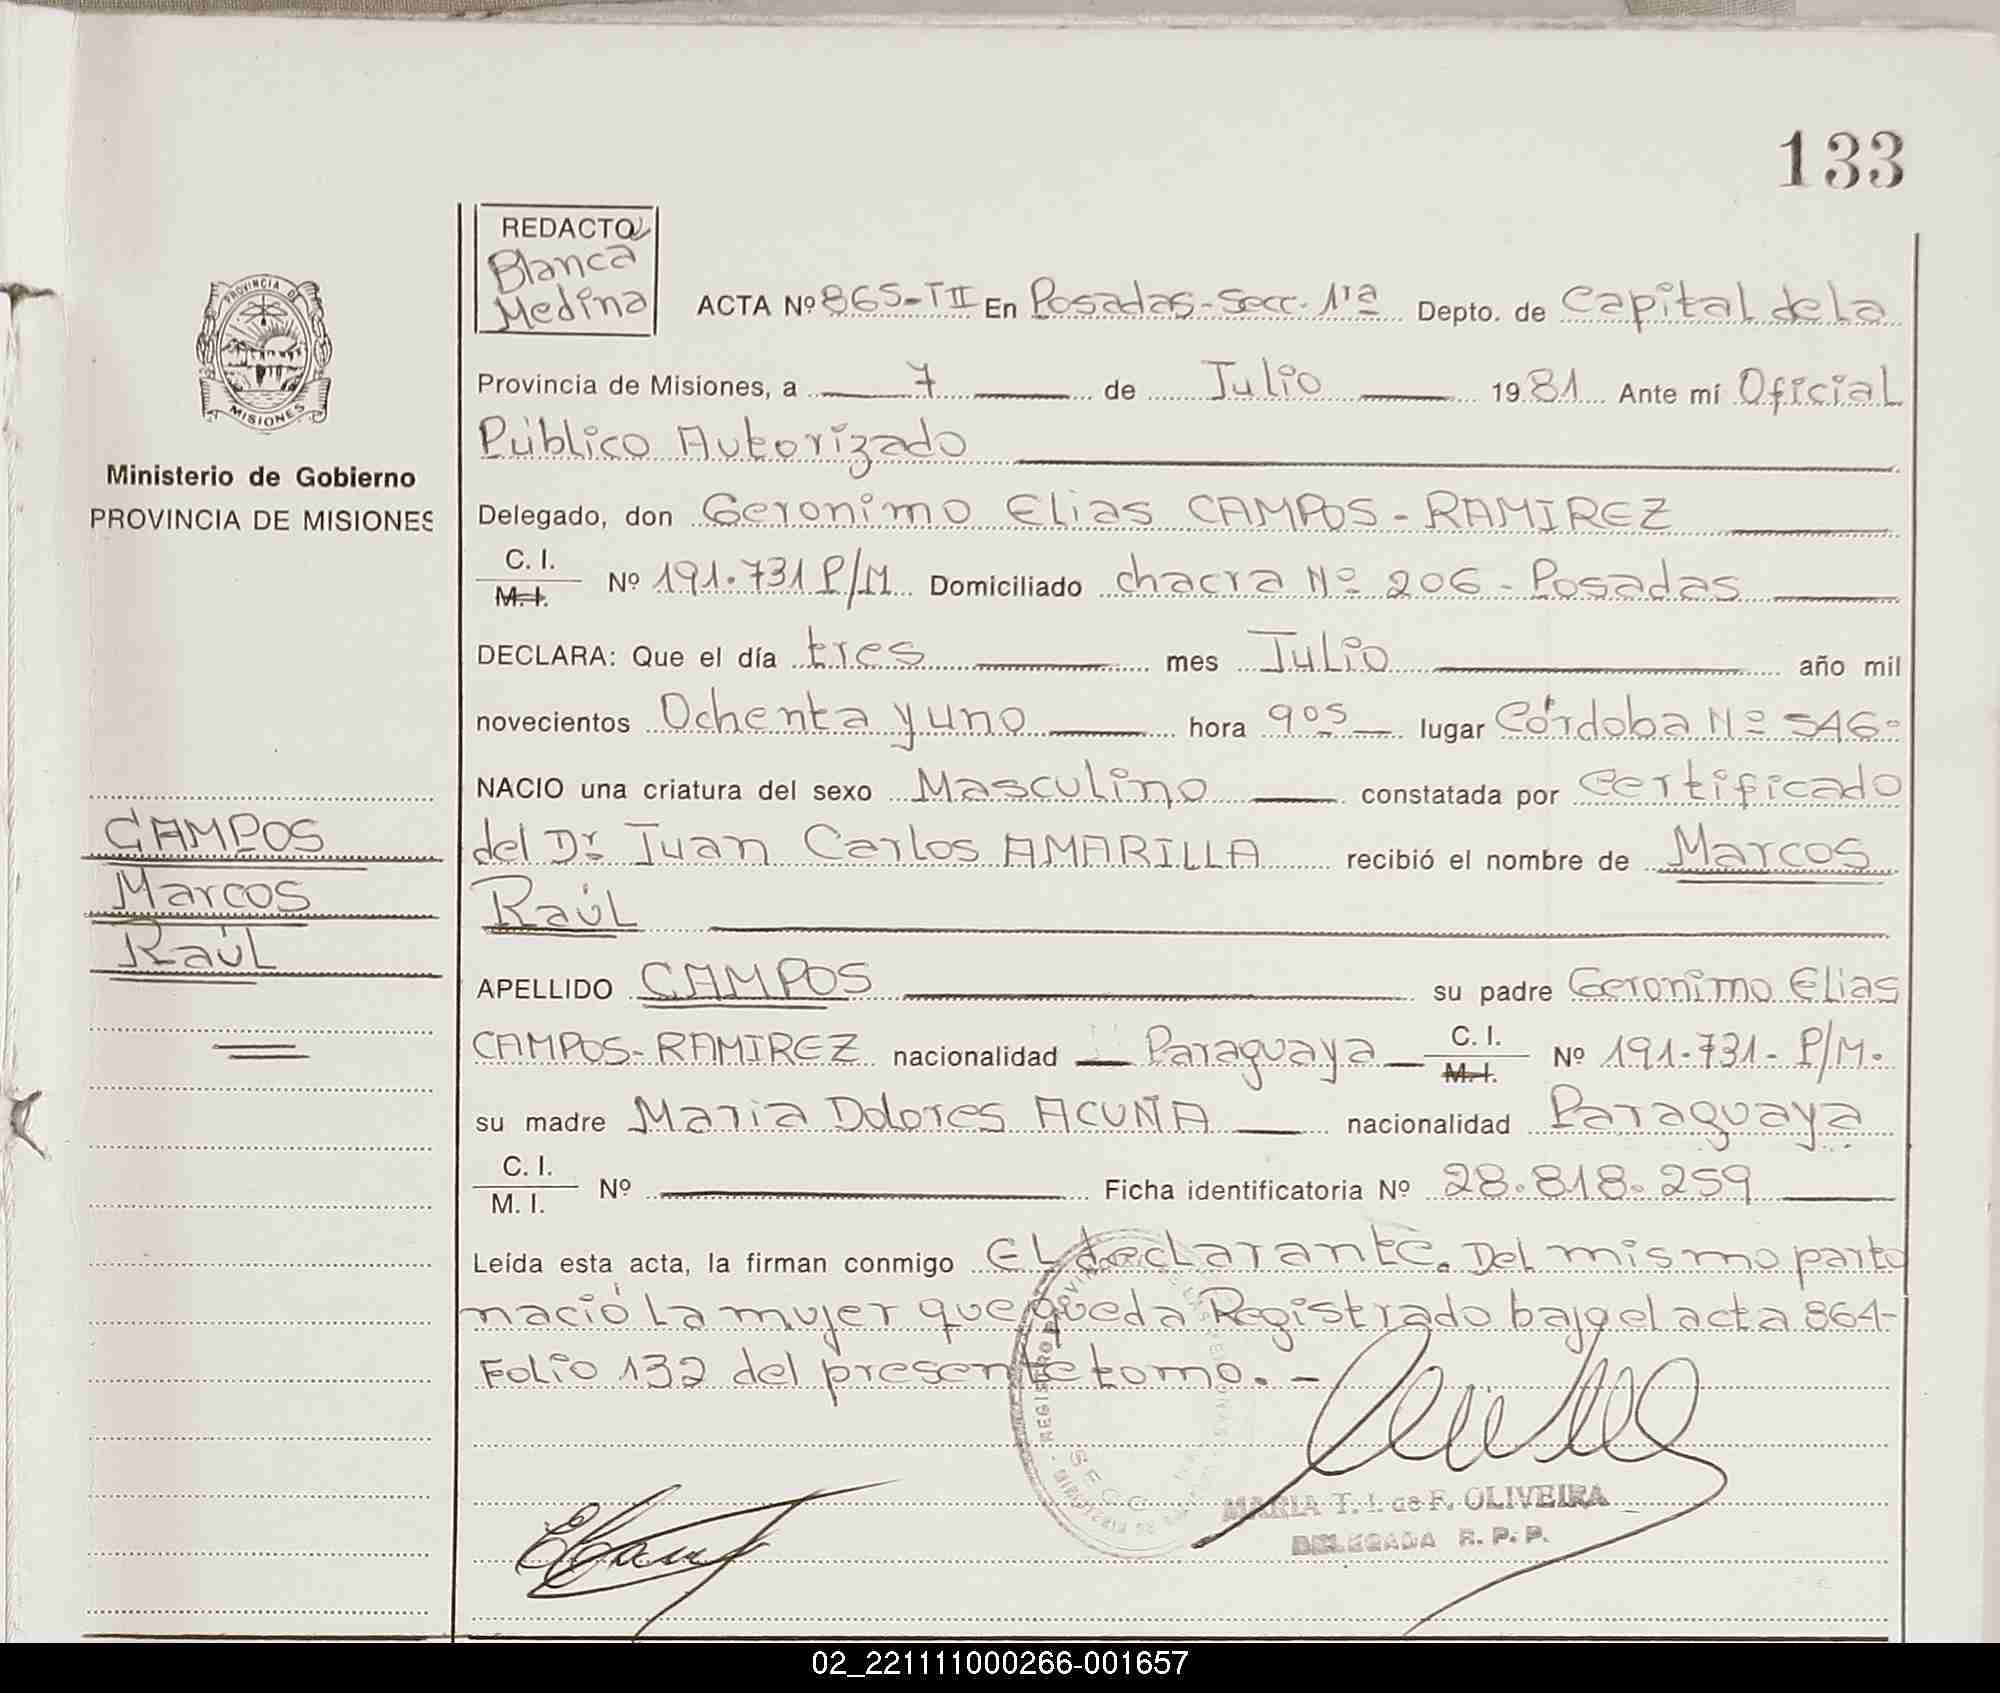 133
REDACTO
Blanca
Medina
PROVINCIA DE
MISIONES
Ministerio de Gobierno
PROVINCIA DE MISIONES
ACTA Nº 865-TII En Posadas-Secc. 1ra Depto. de Capital de la
Provincia de Misiones, a 7 de Julio 1981 Ante mí Oficial
Público Autorizado
Delegado, don Geronimo Elias CAMPOS-RAMIREZ
C. I.
M. I. Nº 191.731 P/M Domiciliado chacra Nº 206 - Posadas
DECLARA: Que el día tres mes Julio año mil
novecientos Ochenta y uno hora 9 05 lugar Córdoba Nº 546-
NACIO una criatura del sexo Masculino constatada por Certificado
del Dr. Juan Carlos AMARILLA recibió el nombre de Marcos
Raúl
CAMPOS
Marcos
Raúl
APELLIDO CAMPOS su padre Geronimo Elias
CAMPOS-RAMIREZ nacionalidad Paraguaya C. I.
M. I. Nº 191.731- P/M.
su madre Maria Dolores ACUÑA nacionalidad Paraguaya
C. I.
M. I. Nº Ficha identificatoria Nº 28.818.259
Leída esta acta, la firman conmigo El declarante. Del mismo parto
nació la mujer que queda Registrado bajo el acta 864-
Folio 132 del presente tomo.-
MARIA T. I. de F. OLIVEIRA
DELEGADA R. P. P.
02_221111000266-001657